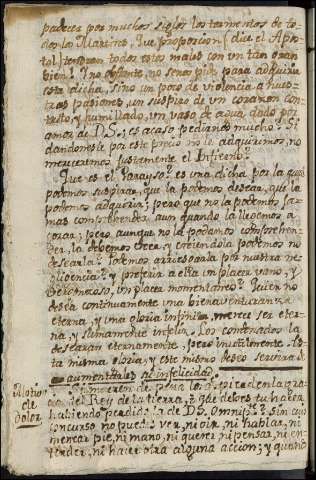 padecer por muchos siglos los tormentos de to-
dos los Martires. Que proporcion (dice el Apos-
tol) tendran todos estos males con un tan gran
bien? Y no obstante, no se nos pide para adquirir
esta dicha, sino un poco de violencia a nues-
tras pasiones, un suspiro de un corazon con-
trito, y humillado, un vaso de agua dado por
amor de D.S.; es acaso pedirnos mucho? Si
dandonosle por este precio no le adquirimos, no
merecemos justamente el Infierno?
Que es el Parayso? es una dicha por la que
podemos suspirar, que la podemos desear, que la
podemos adquirir; pero que no la podemos ja-
mas comprehender aun quando la lleguemos a
gozar; pero aunque no la podamos comprehen-
der, la debemos creer, y creyendola podemos no
desearla? Podemos arriesgarla por nuestra ne-
gligencia? y preferir a ella un placer vano, y
vergonzoso, un placer momentaneo? Quien no
desea continuamente una bienaventuranza
eterna, y una gloria infinita, merece ser eter-
na, y sumamente infeliz. Los condenados la
desearan eternamente, pero inutilmente. Es-
ta misma gloria, y este mismo deseo servira de
aumentarles su infelicidad.
Motivo
de
dolor
Si mueren de pena los que pierden la gra-
cia del Rey de la tierra, que debes tu hacer
habiendo perdido la de D.S. Omnip.te? Sin cuyo
concurso no puedes ver, ni oir, ni hablar, ni
menear pie, ni mano, ni querer, ni pensar, ni en-
tender, ni hacer otra alguna accion; y quando